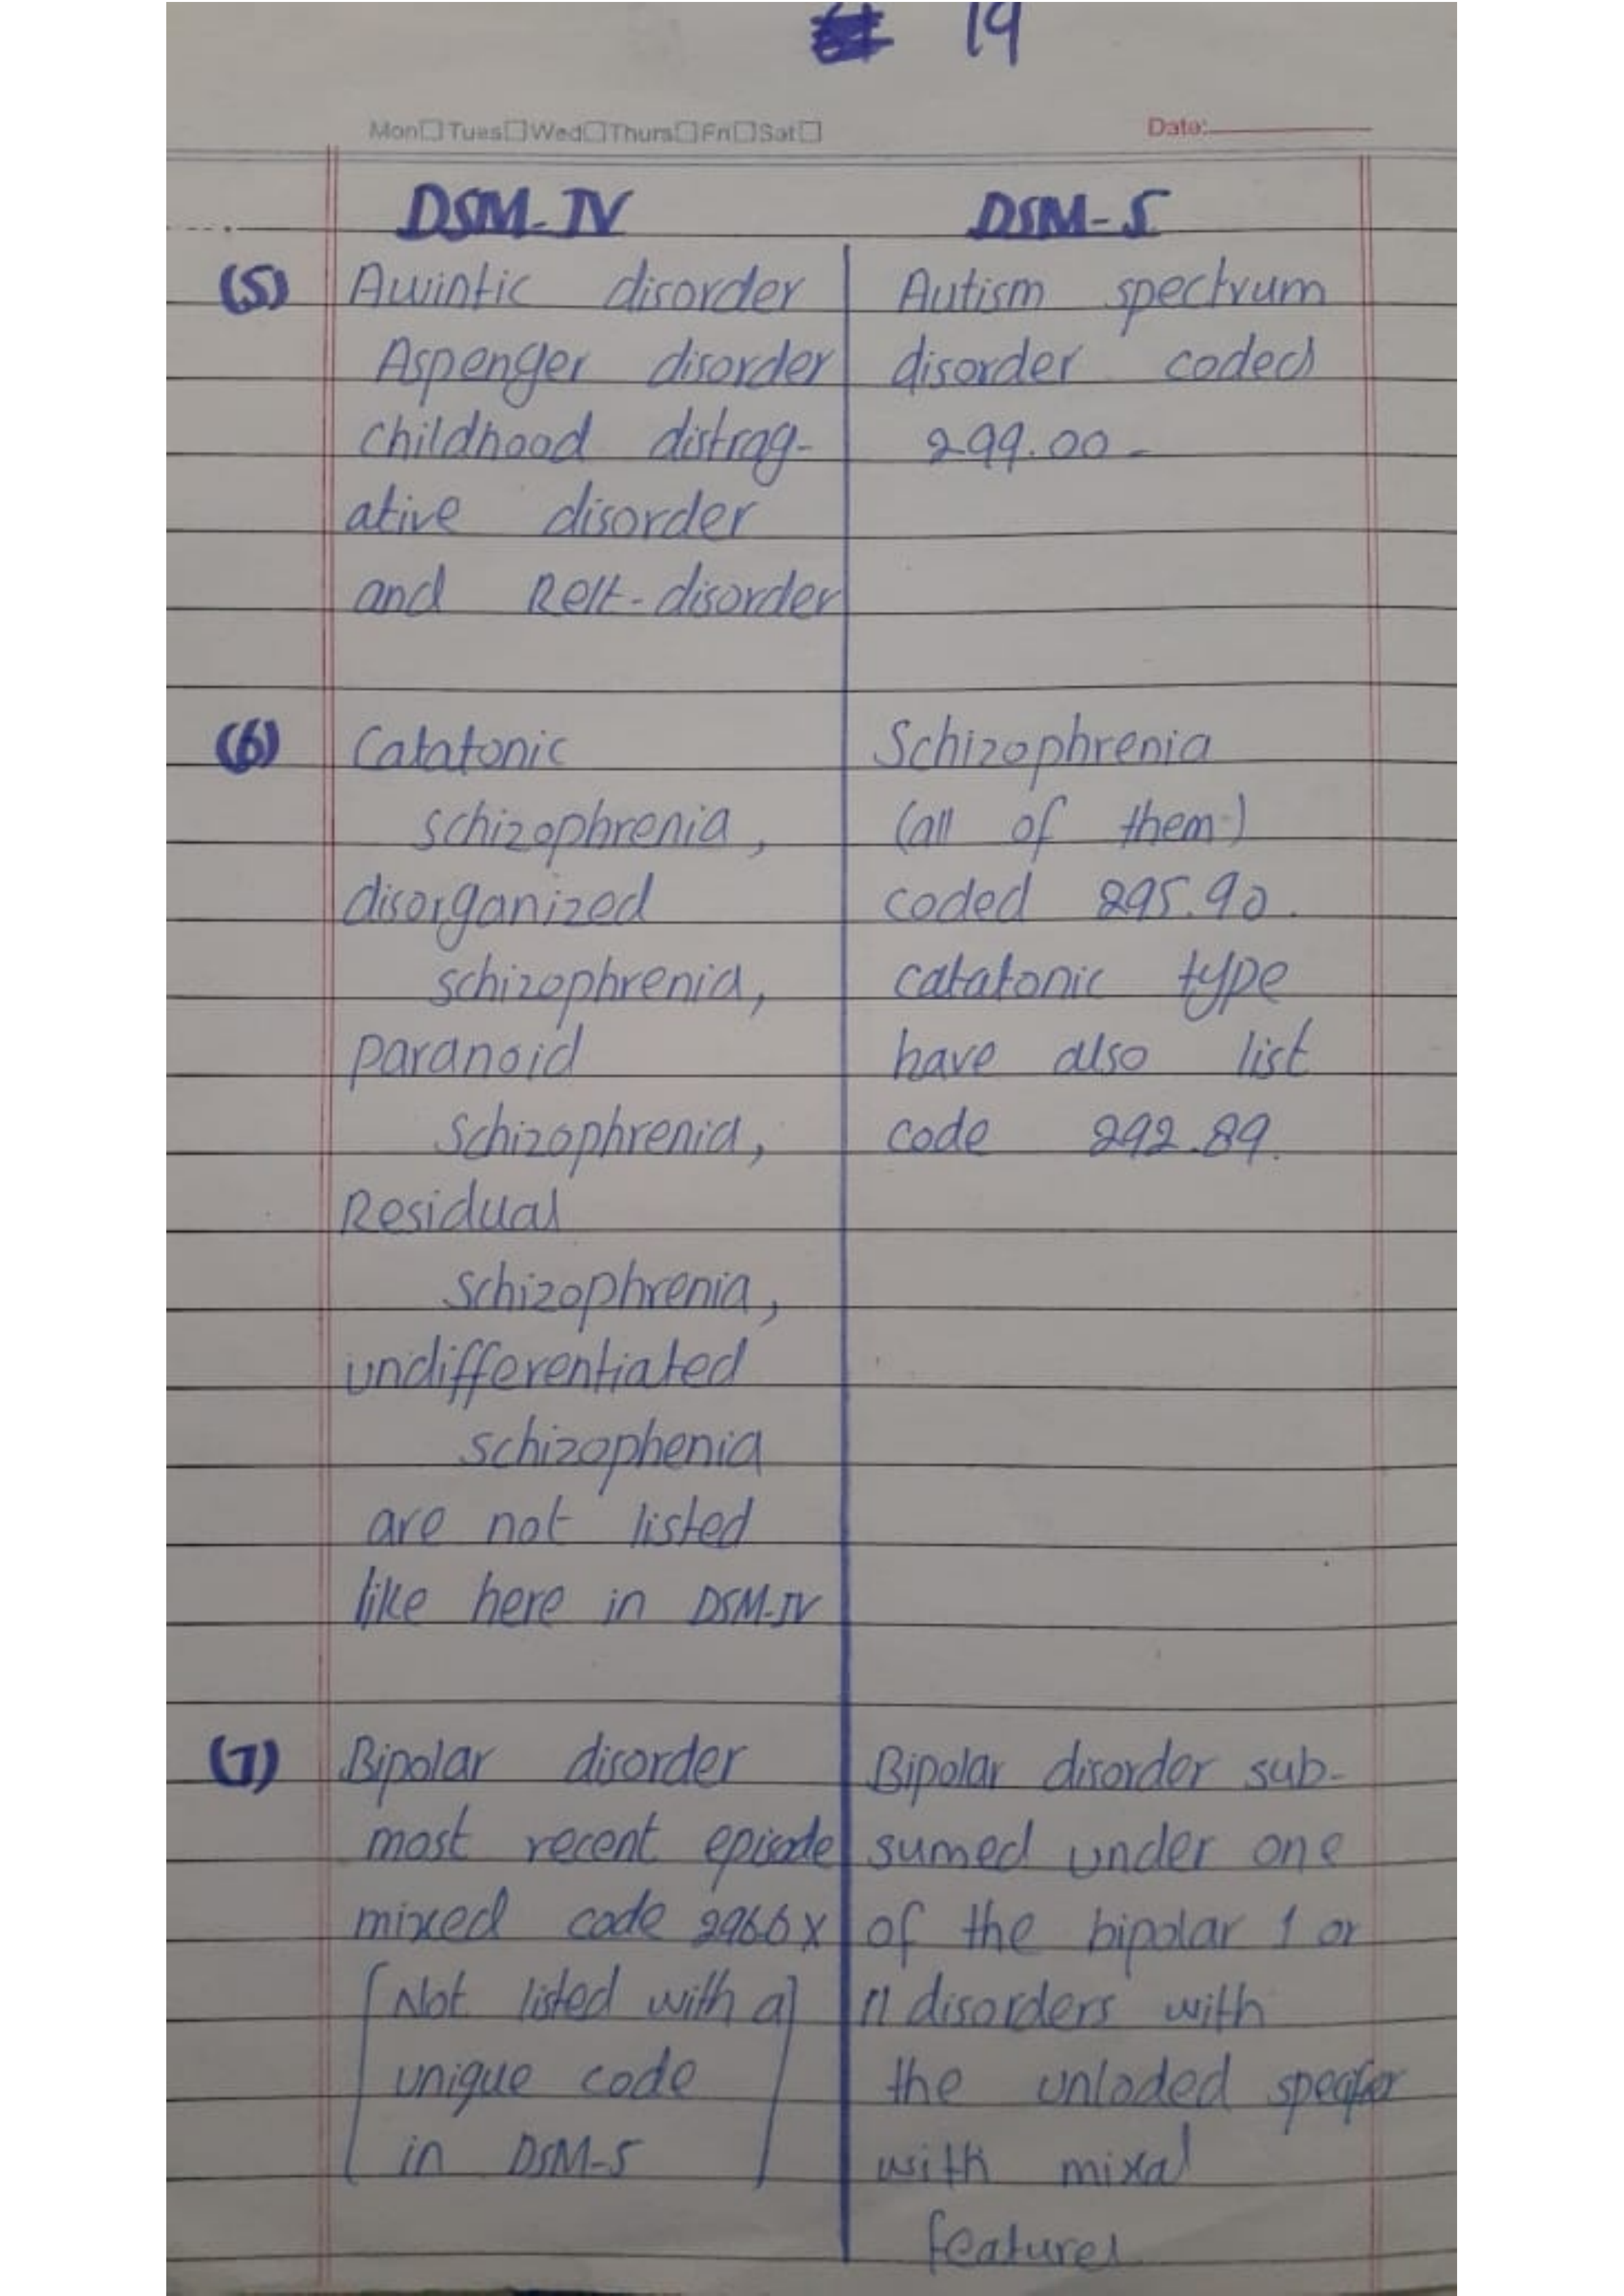 19
Mon Tues Wed Thurs Fri Sat
Date:
DSM-IV
DSM-5
(5) Auintic disorder
Aspenger disorder
childhood distrag-
ative disorder
and Rett-disorder
Autism spectrum
disorder coded
299.00-
(6) Catatonic
schizophrenia,
disorganized
schizophrenia,
paranoid
schizophrenia,
Residual
schizophrenia,
undifferentiated
schizophenia
are not listed
like here in DSM-IV
Schizophrenia
(all of them)
coded 295.90.
catatonic type
have also list
code 292.89.
(7) Bipolar disorder
most recent episode
mixed code 296.6x
[Not listed with a]
unique code
in DSM-5
Bipolar disorder sub-
sumed under one
of the bipolar 1 or
11 disorders with
the unloded specifier
with mixal
features